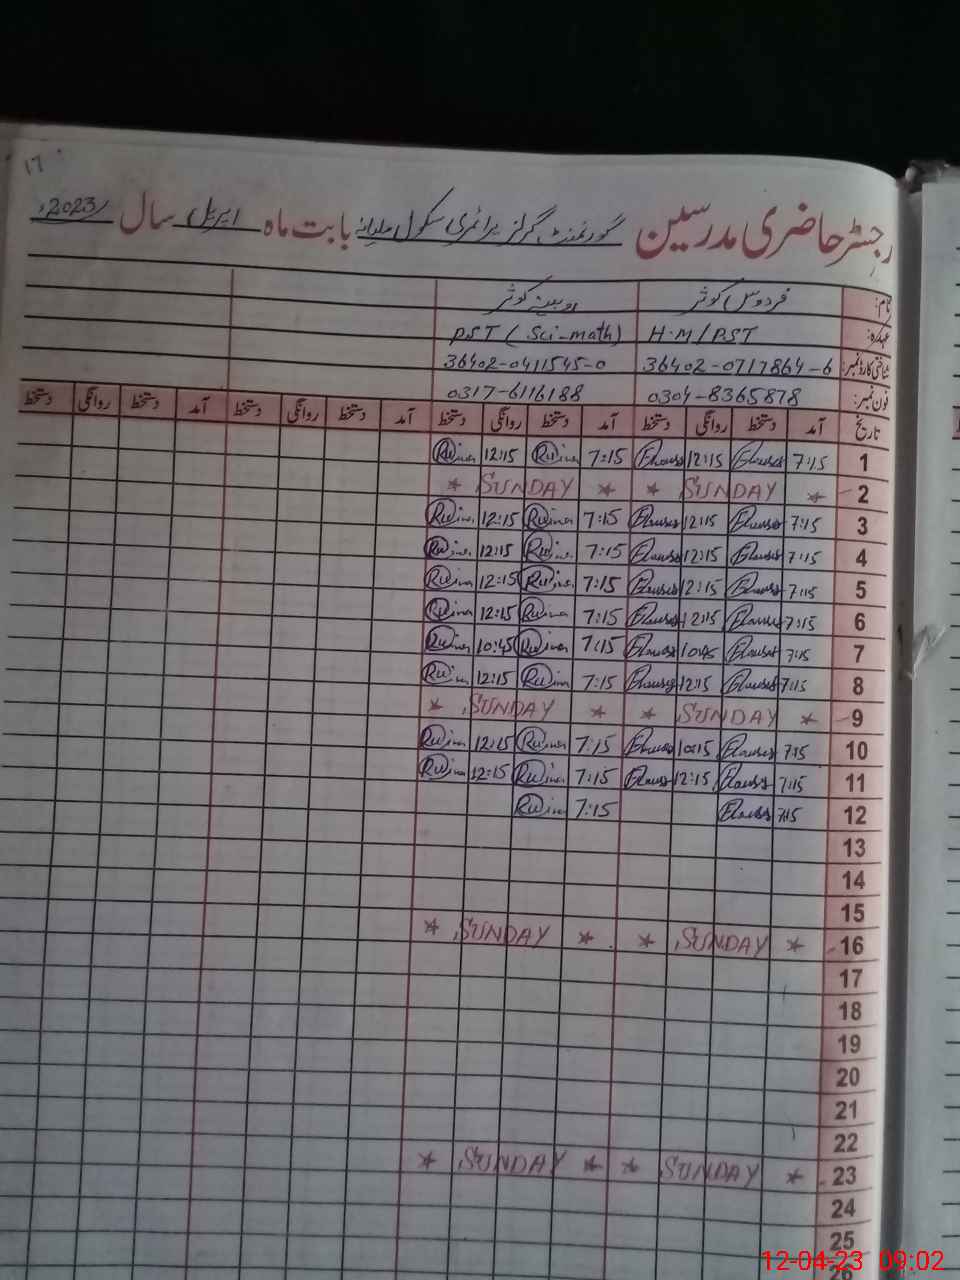 17
رجسٹر حاضری مدرسین گورنمنٹ گرلز پرائمری سکول بابت ماہ اپریل سال 2023ء
نام: فردوس کوثر روبینہ کوثر
عہدہ: H.M/PST PST (Sci-math)
شناختی کارڈ نمبر: 36402-0717864-6 36402-0411545-0
فون نمبر: 0304-8365878 0317-6116188
تاریخ آمد دستخط روانگی دستخط آمد دستخط روانگی دستخط آمد دستخط روانگی دستخط آمد دستخط روانگی دستخط
1 7:15 12:15 7:15 12:15
2 * SUNDAY * * SUNDAY *
3 7:15 12:15 7:15 12:15
4 7:15 12:15 7:15 12:15
5 7:15 12:15 7:15 12:15
6 7:15 12:15 7:15 12:15
7 7:15 10:45 7:15 10:45
8 7:15 12:15 7:15 12:15
9 * SUNDAY * * SUNDAY *
10 7:15 10:15 7:15 12:15
11 7:15 12:15 7:15 12:15
12 7:15 7:15
13
14
15
16 * SUNDAY * * SUNDAY *
17
18
19
20
21
22
23 * SUNDAY * * SUNDAY *
24
25
26
12-04-23 09:02